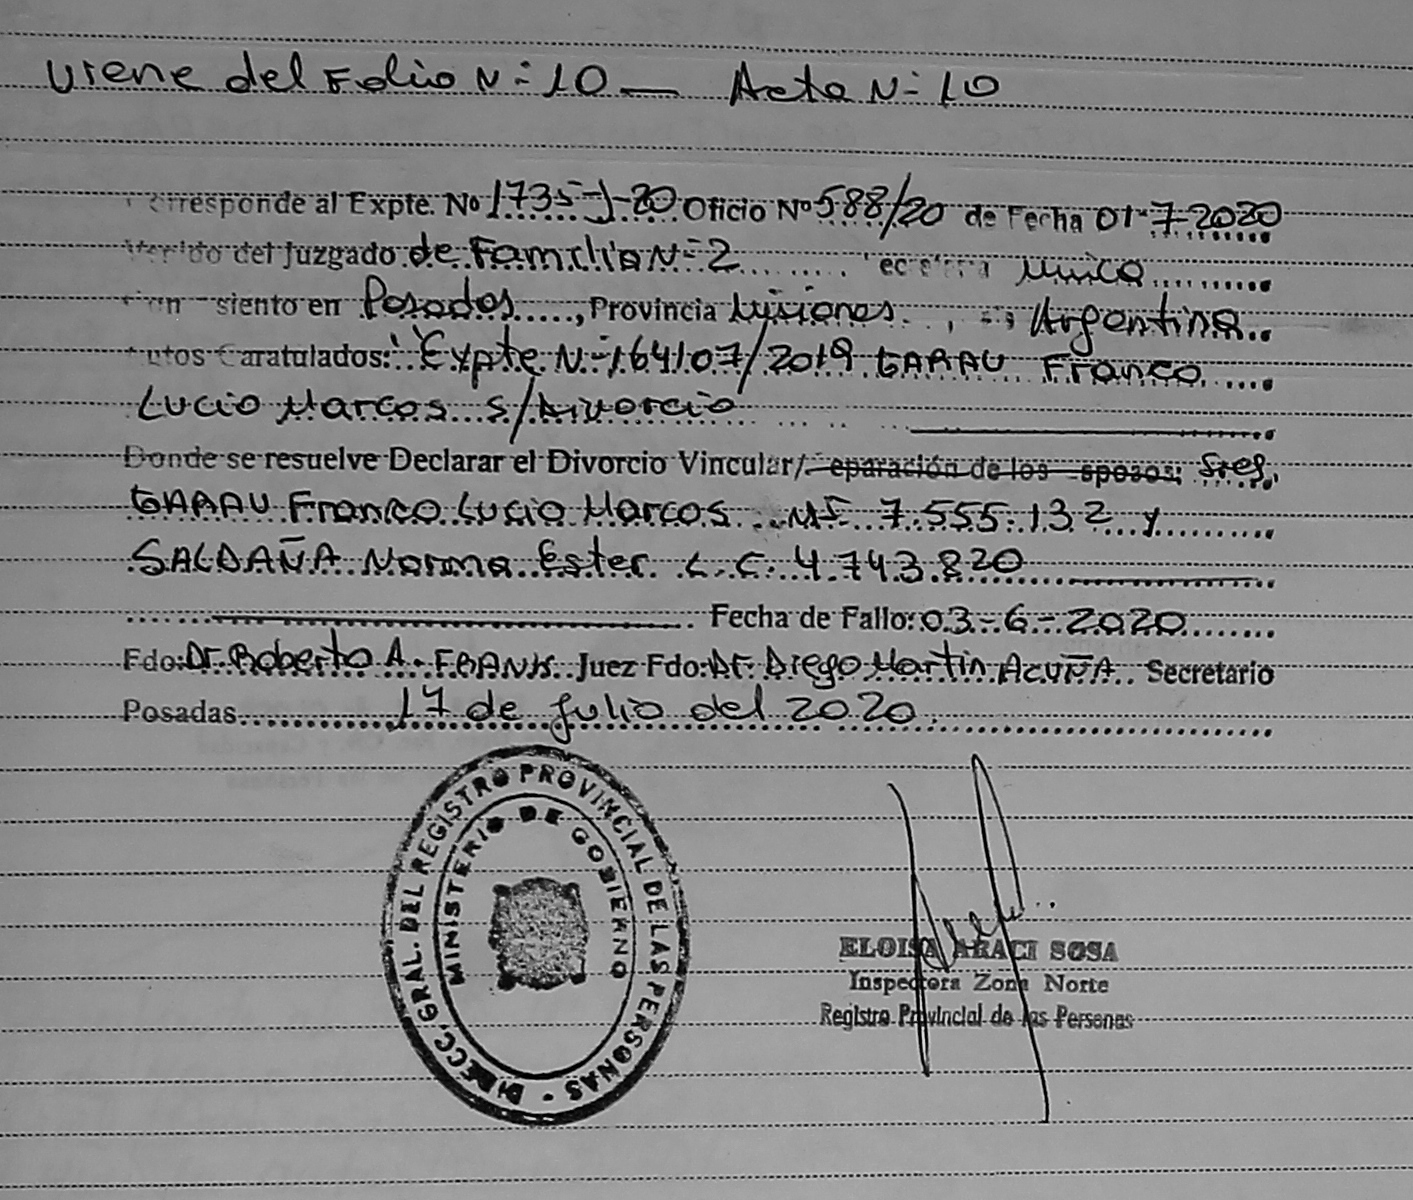 Viene del Folio N-10 — Acta N-10
Corresponde al Expte. Nº 1735-J-20 Oficio Nº 588/20 de Fecha 01-7-2020
del Juzgado de Familia N-2 única
siento en Posadas, Provincia Misiones, Argentina
Autos Caratulados: "Expte N-164107/2019 GARAU Franco
Lucio Marcos s/Divorcio
Donde se resuelve Declarar el Divorcio Vincular/Separación de los esposos: Sres.
GARAU Franco Lucio Marcos MI 7.555.132 y
SALDAÑA Norma Ester L.C. 4.743.820
Fecha de Fallo: 03-6-2020
Fdo: Dr. Roberto A. FRANK Juez Fdo: Dr. Diego Martin ACUÑA Secretario
Posadas 17 de julio del 2020
DIRECC. GRAL. DEL REGISTRO PROVINCIAL DE LAS PERSONAS -
MINISTERIO DE GOBIERNO
ELOISA ARACI SOSA
Inspectora Zona Norte
Registro Provincial de las Personas